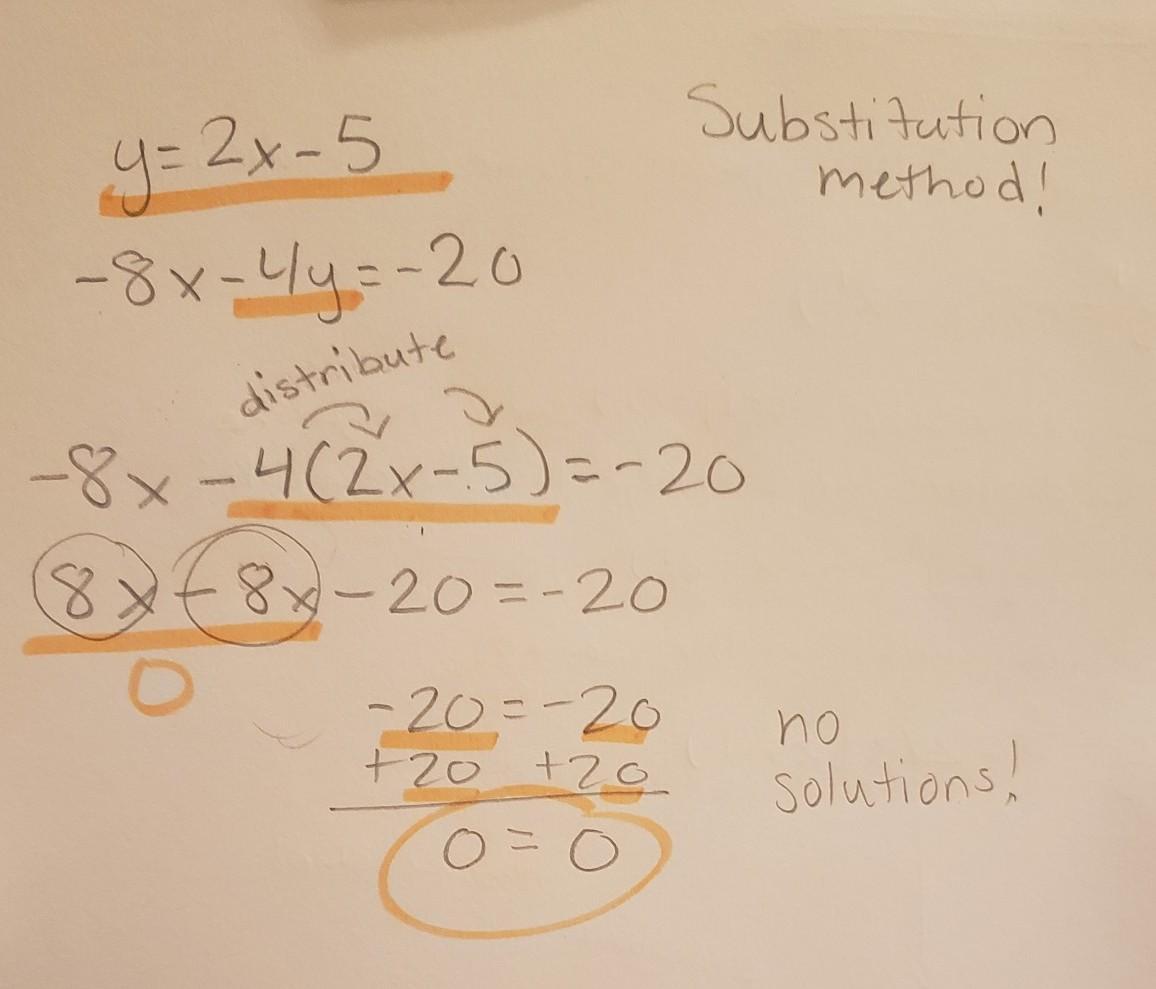 Substitution
method!
y=2x-5
-8x-4y=-20
distribute
-8x-4(2x-5)=-20
8x-8x-20=-20
0
-20=-20
+20 +20
0=0
no
solutions!